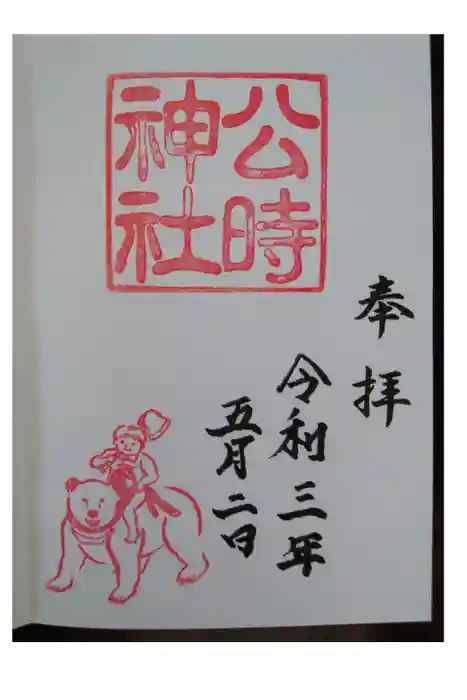 公時
神社
奉拝
令和三年
五月二日